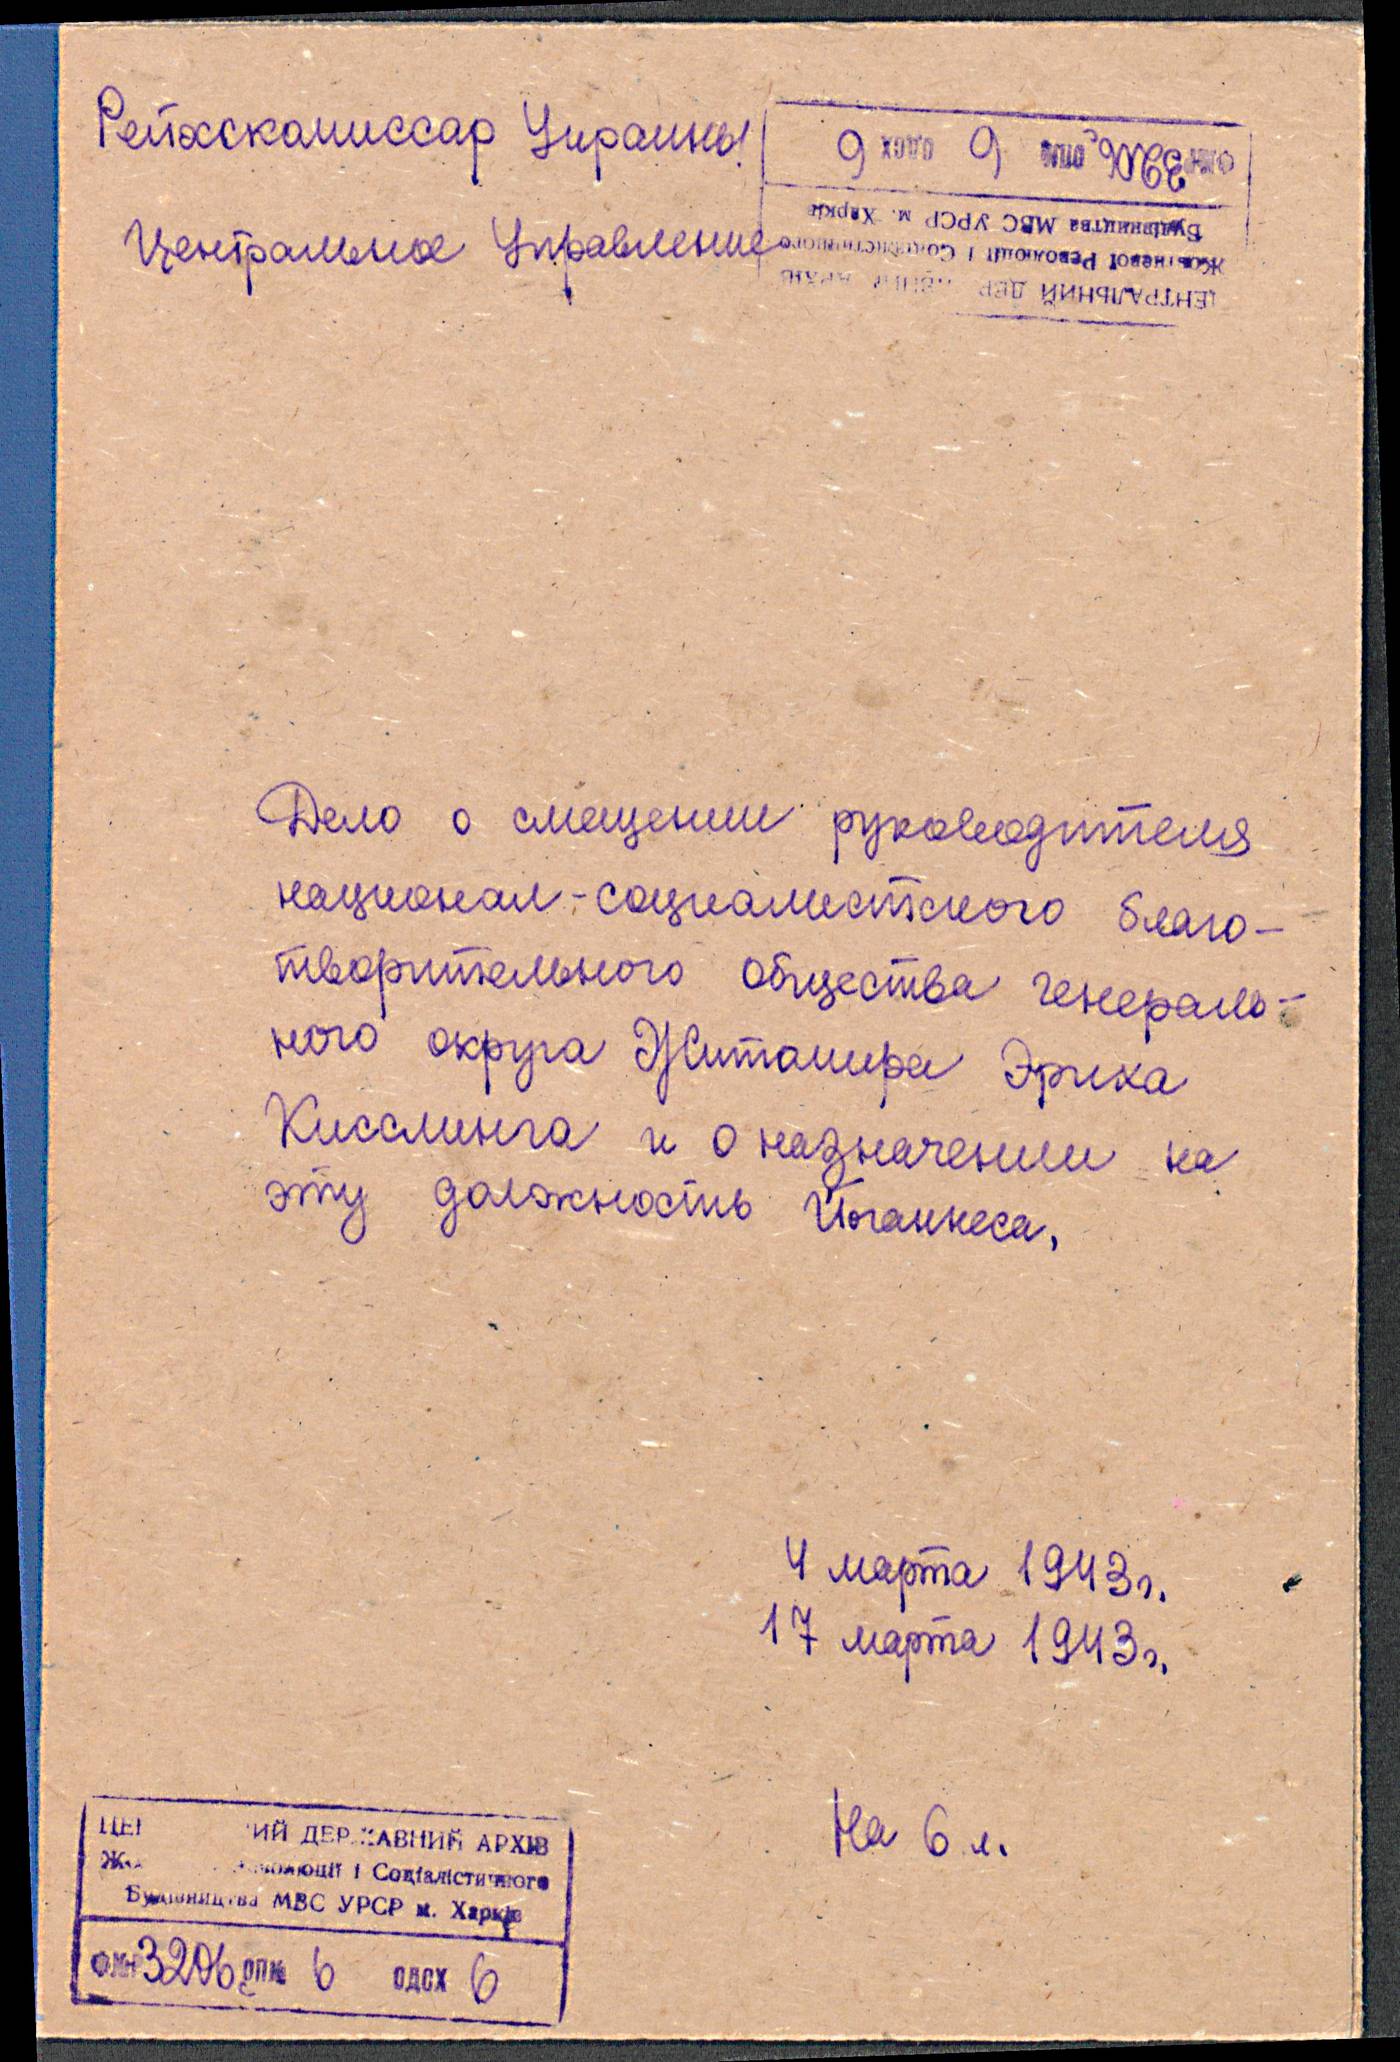 Рейхскомиссар Украины
Центральное Управление
9 одсх 6 оп№ 3206с ф№
Будівництва МВС УРСР м. Харків
Жовтневої Революції і Соціалістичного
ЦЕНТРАЛЬНИЙ ДЕР АРХІВ
Дело о смещении руководителя
национал-социалистского благо-
творительного общества генераль-
ного округа Житомира Эриха
Кисслинга и о назначении на
эту должность Йоганнеса.
4 марта 1943г.
17 марта 1943г.
На 6 л.
ЦЕН ИЙ ДЕРЖАВНИЙ АРХІВ
Жо Революції і Соціалістичного
Будівництва МВС УРСР м. Харків
ф№ 3206с оп№ 6 одсх 6